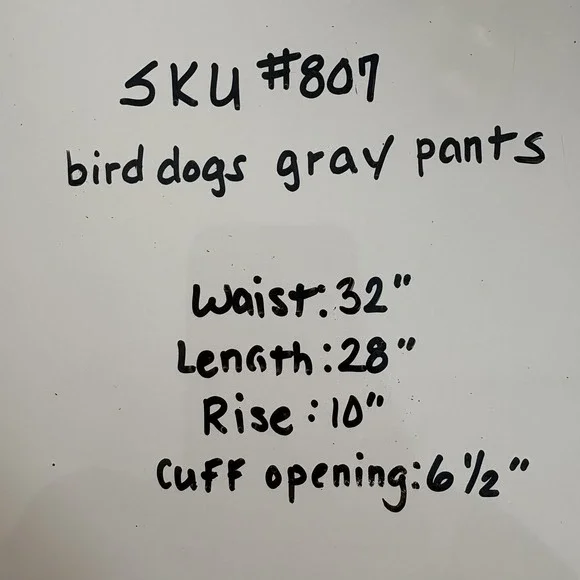 SKU #807
bird dogs gray pants
Waist: 32"
Length: 28"
Rise: 10"
Cuff opening: 6 1/2"